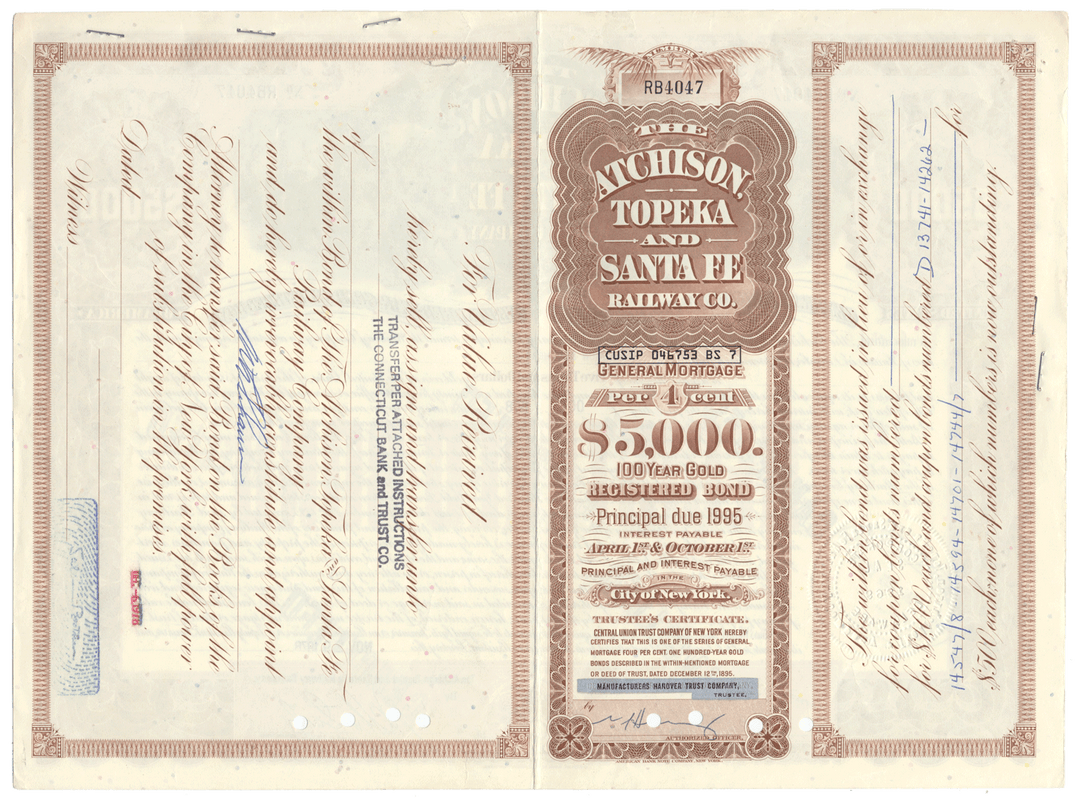 NUMBER
RB4047
THE
ATCHISON,
TOPEKA
AND
SANTA FE
RAILWAY CO.
CUSIP 046753 BS 7
GENERAL MORTGAGE
Per 4 cent
$5,000.
100 YEAR GOLD
REGISTERED BOND
Principal due 1995
INTEREST PAYABLE
APRIL 1ST & OCTOBER 1ST
PRINCIPAL AND INTEREST PAYABLE
IN THE
City of New York.
TRUSTEE'S CERTIFICATE.
CENTRAL UNION TRUST COMPANY OF NEW YORK HEREBY
CERTIFIES THAT THIS IS ONE OF THE SERIES OF GENERAL
MORTGAGE FOUR PER CENT. ONE HUNDRED-YEAR GOLD
BONDS DESCRIBED IN THE WITHIN-MENTIONED MORTGAGE
OR DEED OF TRUST, DATED DECEMBER 12TH, 1895.
MANUFACTURERS HANOVER TRUST COMPANY,
TRUSTEE,
by
AUTHORIZED OFFICER.
AMERICAN BANK NOTE COMPANY, NEW YORK.
The within bond was issued in lieu of or in exchange
for coupon bonds numbered
for $1000 each and coupon bonds numbered D 13741-14262-
14547/8-14594-14701-14744/7 for
$500 each none of which numbers is now outstanding.
For Value Received
hereby sell, assign and transfer unto
TRANSFER PER ATTACHED INSTRUCTIONS
THE CONNECTICUT BANK and TRUST CO.
of
the within Bond of The Atchison, Topeka and Santa Fe
Railway Company
and do hereby irrevocably constitute and appoint
Attorney to transfer the said Bond on the Books of the
Company in the City of New York, with full power
of substitution in the premises.
Dated
Witness